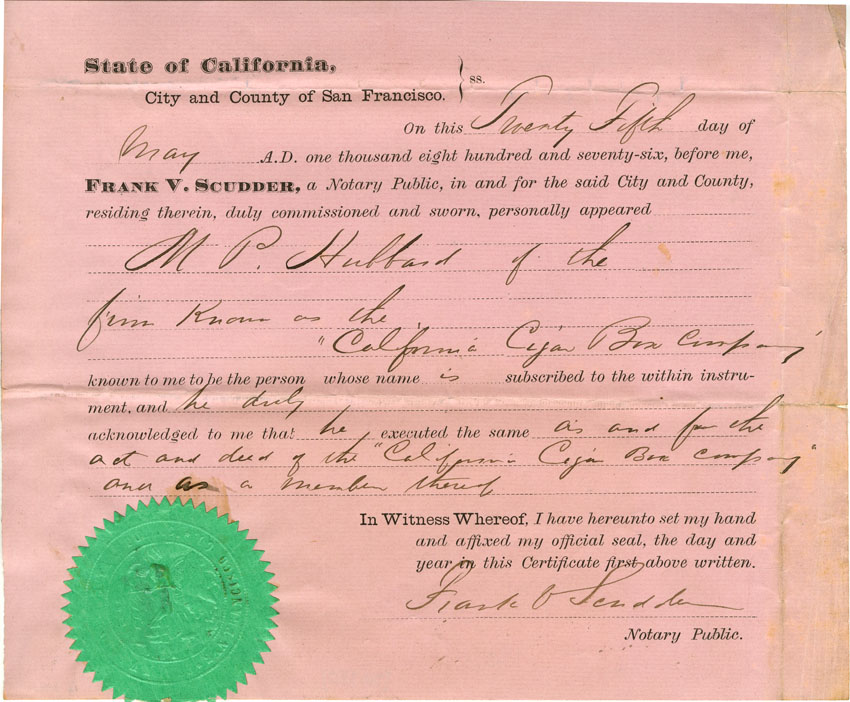 State of California,
City and County of San Francisco. } ss.
On this Twenty Fifth day of
May A.D. one thousand eight hundred and seventy-six, before me,
FRANK V. SCUDDER, a Notary Public, in and for the said City and County,
residing therein, duly commissioned and sworn, personally appeared
M P. Hubbard of the
firm Known as the
"California Cigar Box Company"
known to me to be the person whose name is subscribed to the within instru-
ment, and he duly
acknowledged to me that he executed the same as and for the
act and deed of the "California Cigar Box Company"
and as a member thereof
In Witness Whereof, I have hereunto set my hand
and affixed my official seal, the day and
year in this Certificate first above written.
Frank V Scudder
Notary Public.